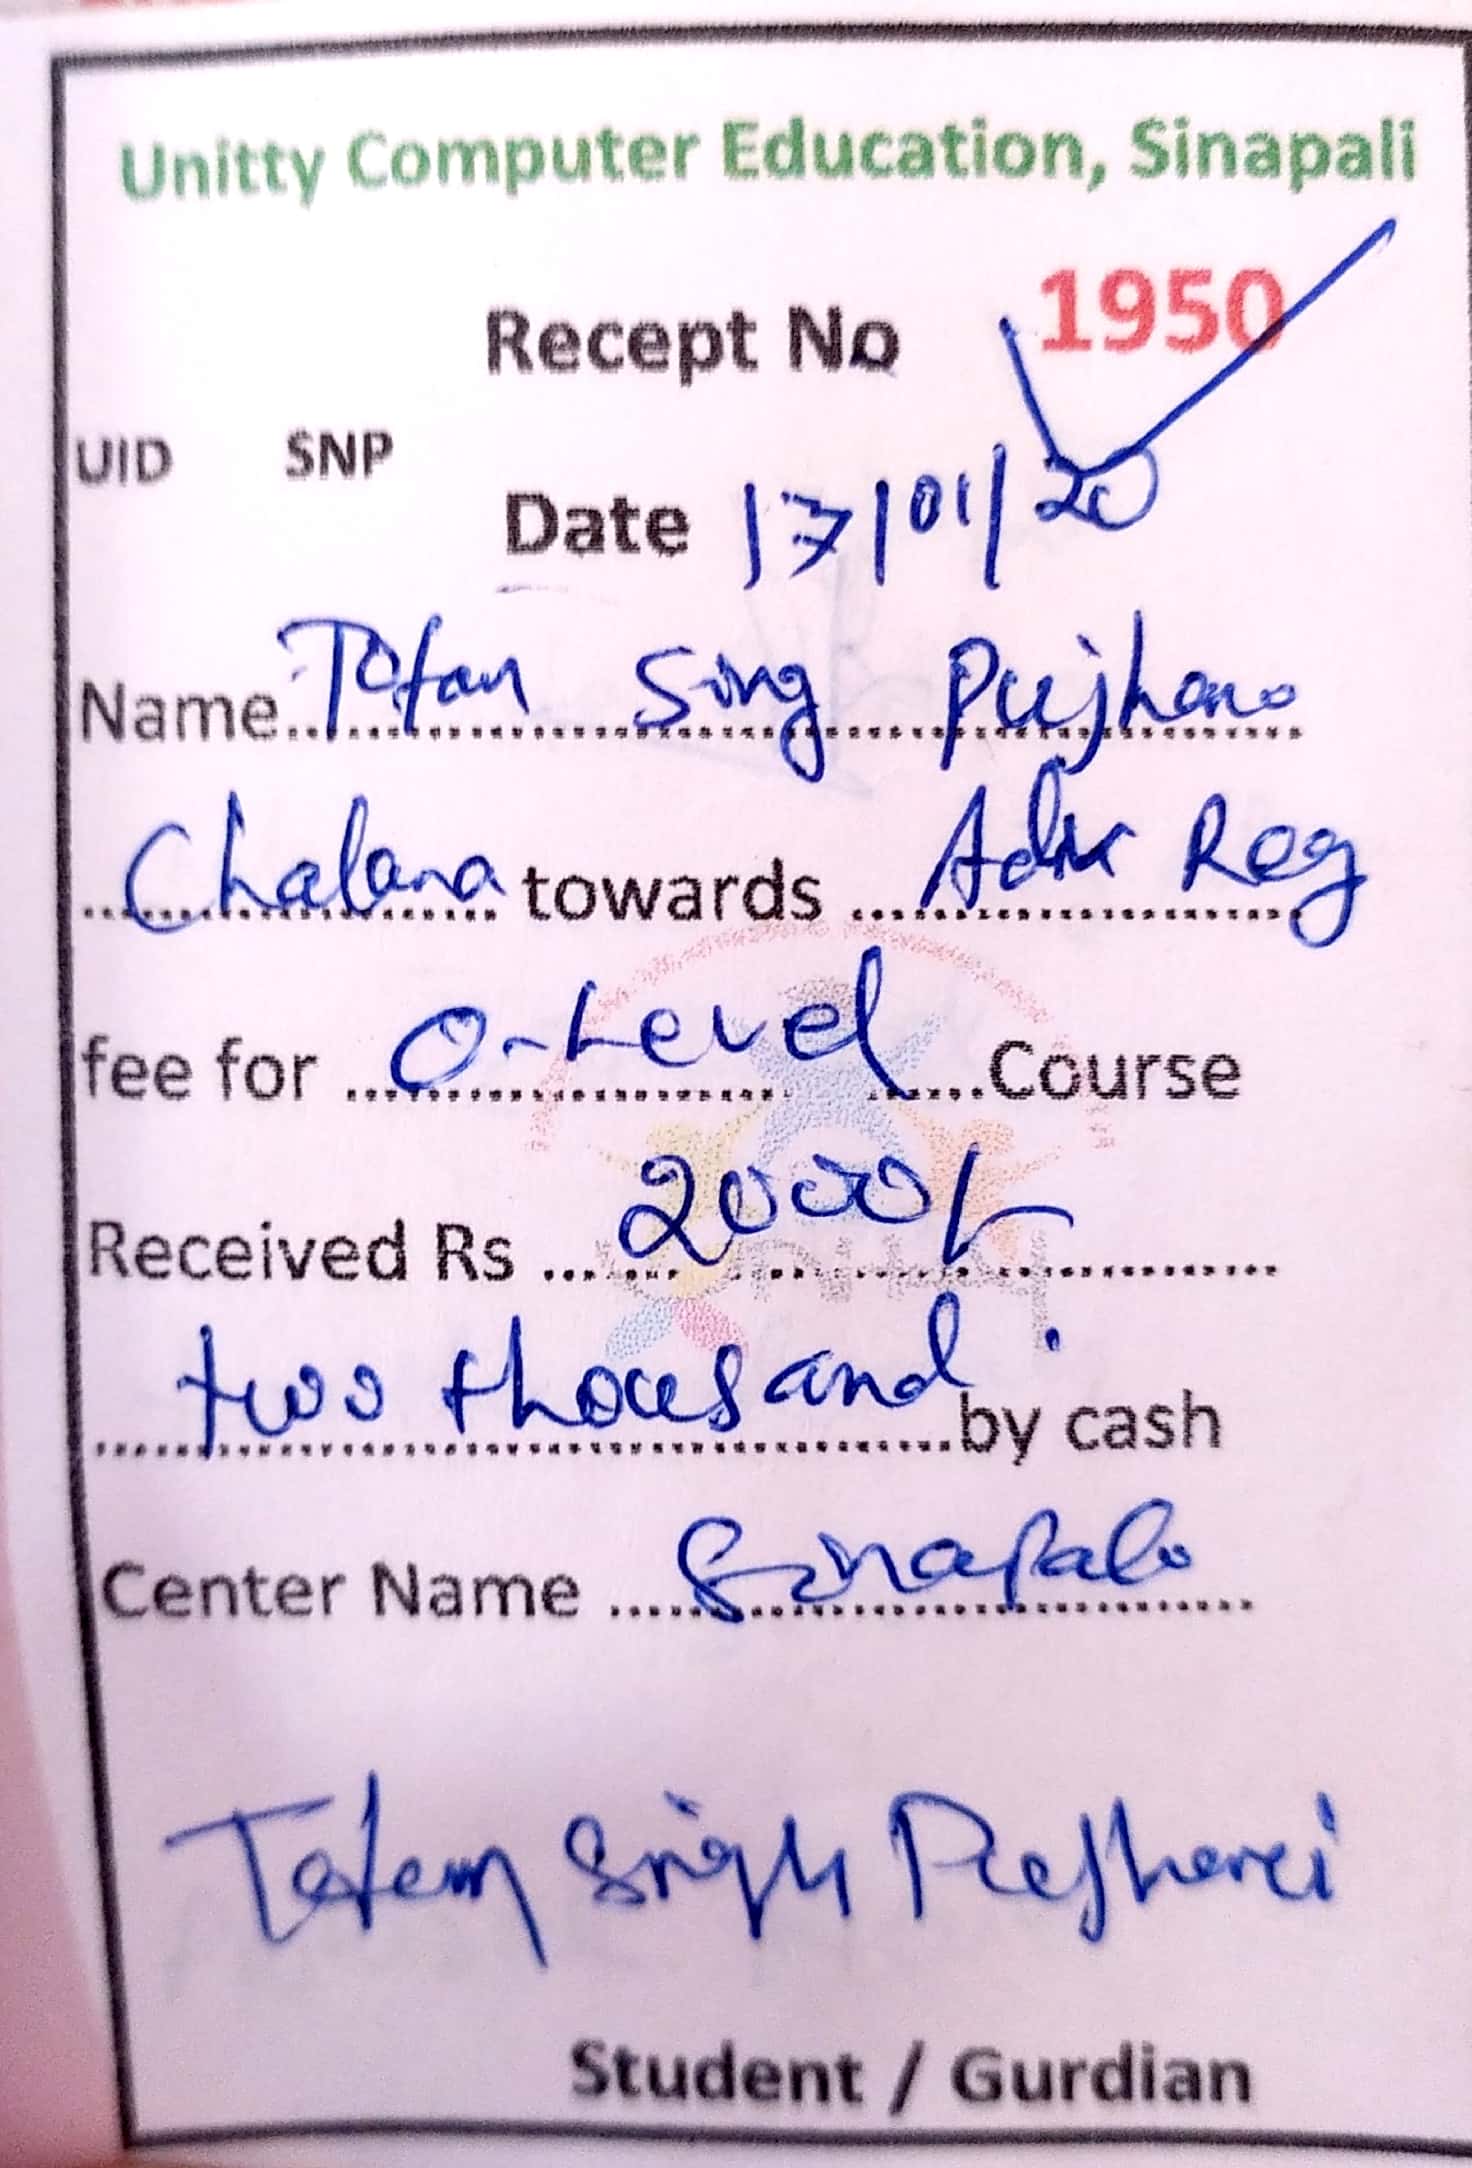 Unitty Computer Education, Sinapali
Recept No 1950
UID SNP
Date 17/01/20
Name Tofan Sing Pujhari
Chalana towards Adm Reg
fee for O-Level Course
Received Rs 2000/-
two thousand by cash
Center Name Sinapali
Tofan Singh Pujhari
Student / Gurdian